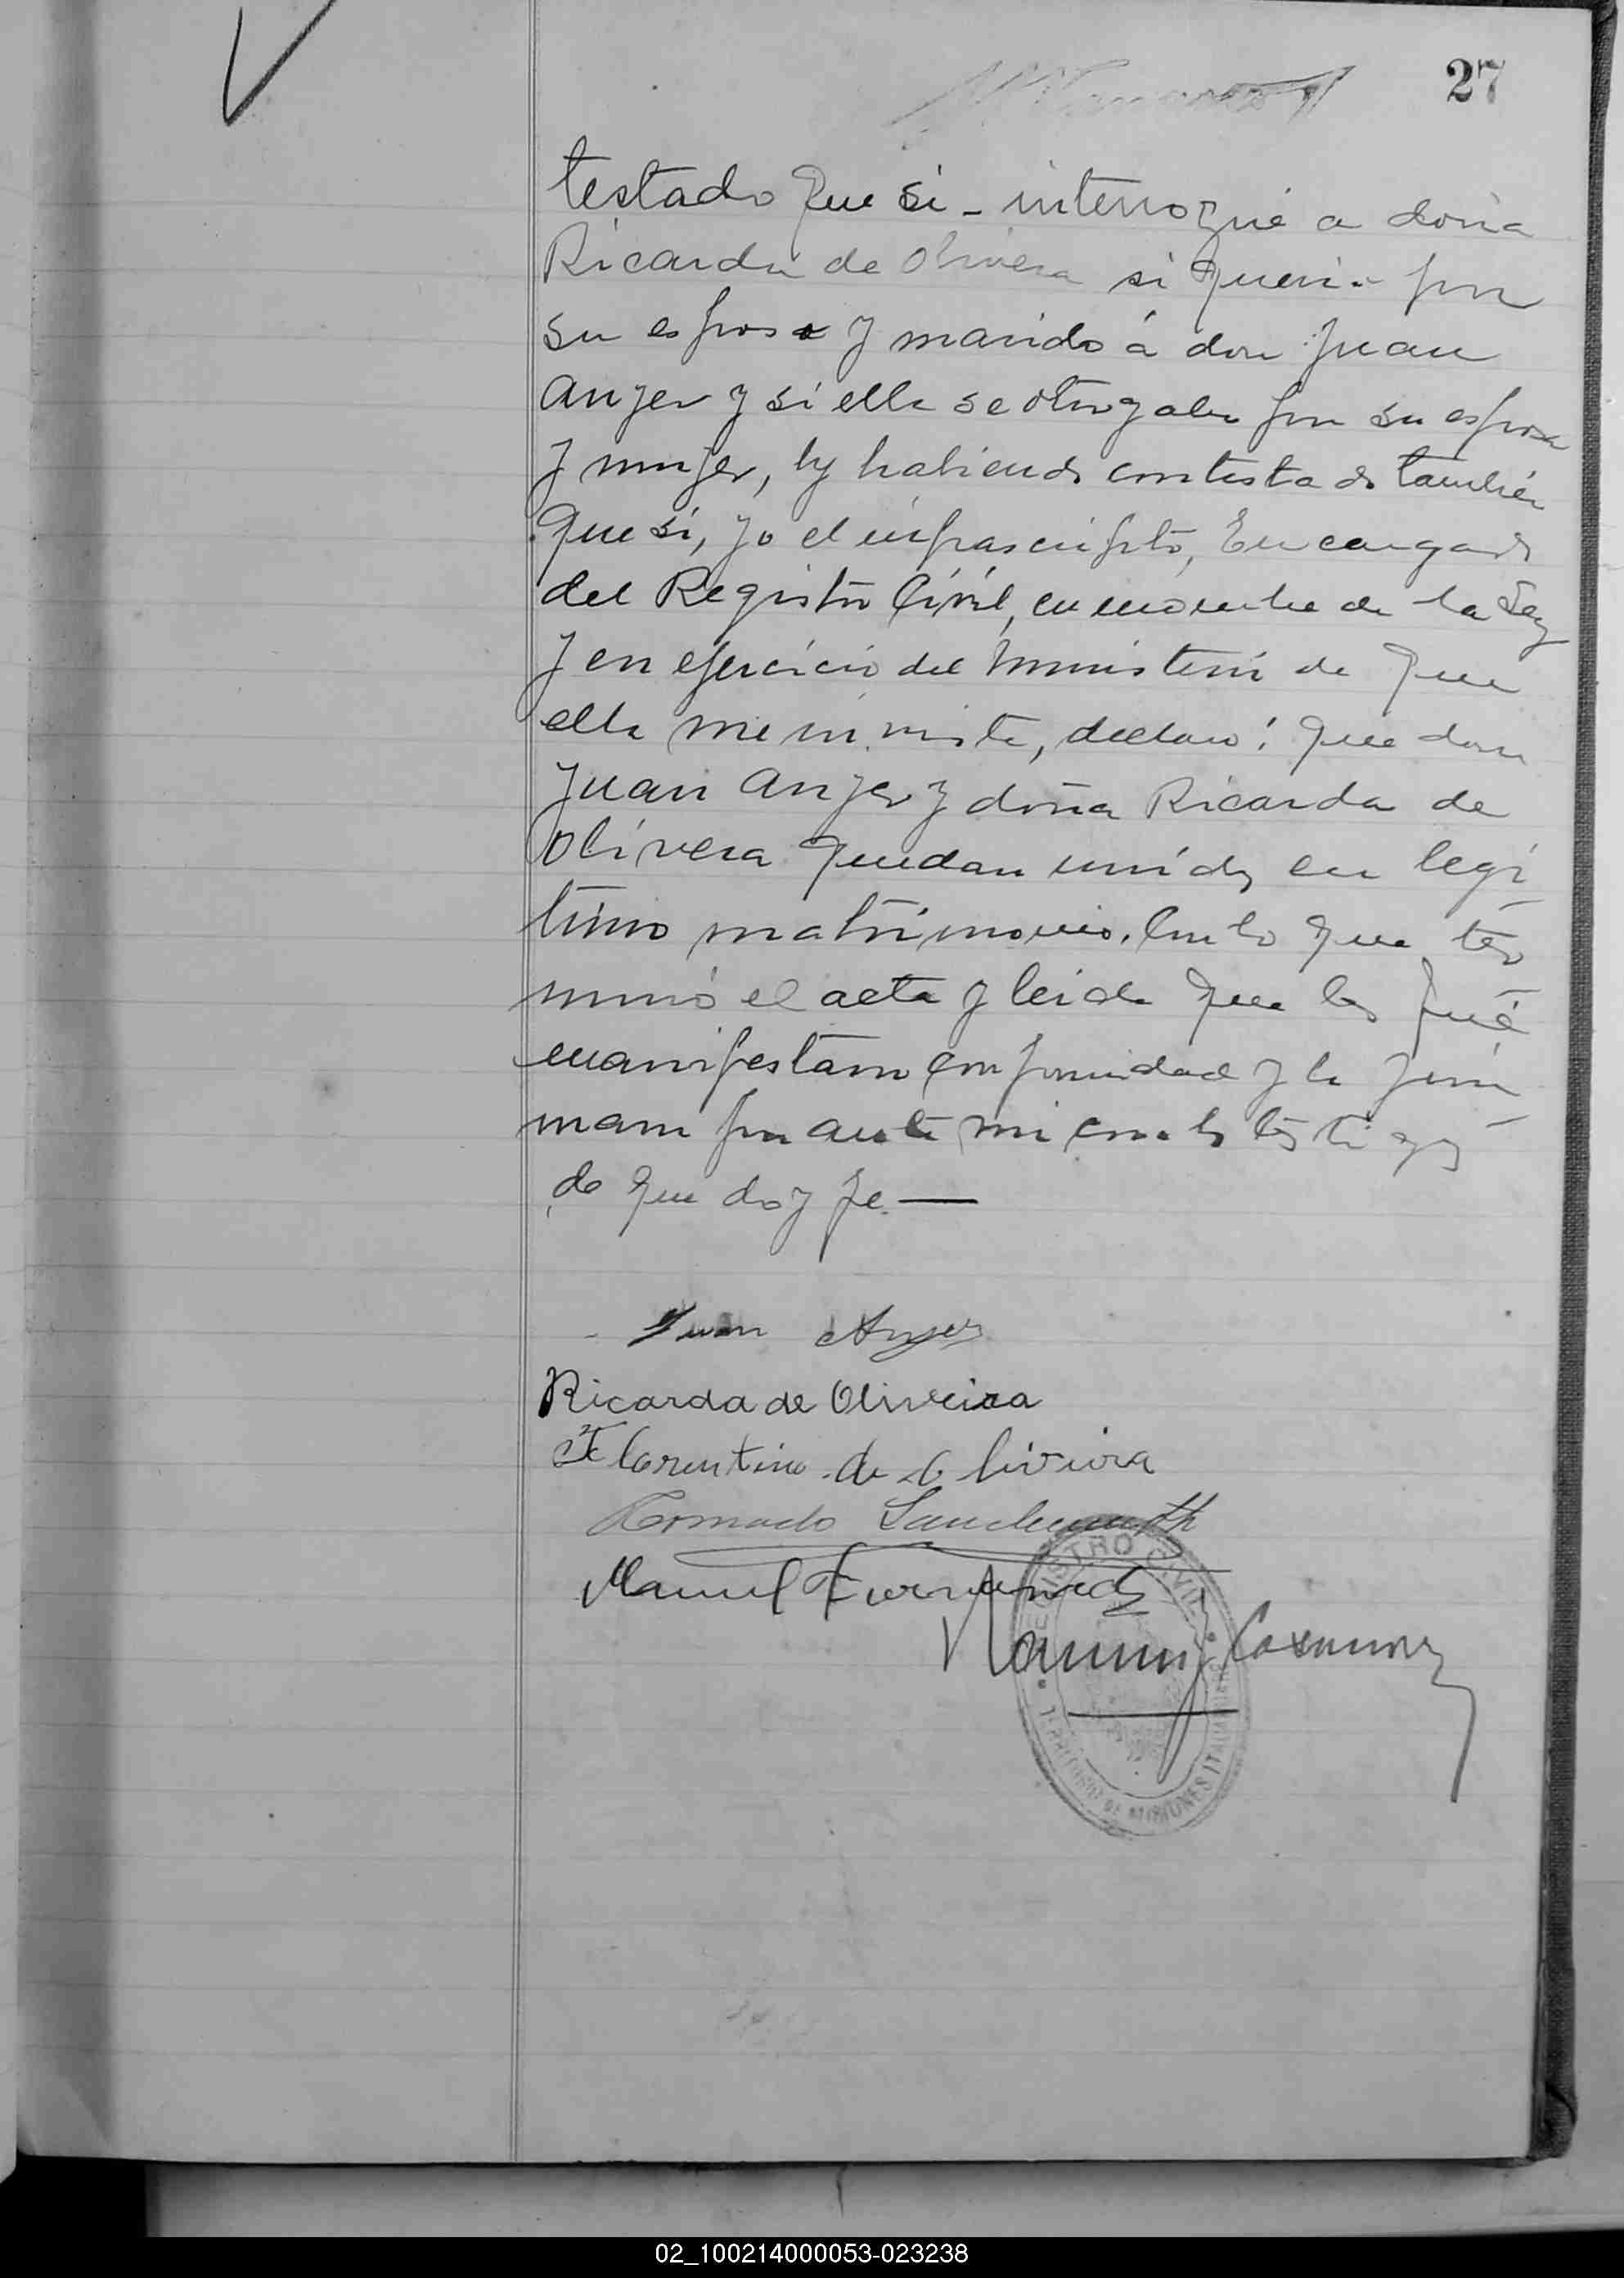 27
testado que si - interrogué a doña
Ricarda de Olivera si queria por
su esposo y marido á don Juan
Anger y si ella se otorgaba por su esposa
y mujer, y habiendo contestado también
que si, yo el infrascripto, Encargado
del Registro Civil, en nombre de la Ley
y en ejercicio del Ministerio de que
ella me inviste, declaro: que don
Juan Anger y doña Ricarda de
Olivera quedan unidos en legi
timo matrimonio. Con lo que ter
minó el acta y leida que les fué
manifestaron conformidad y la fir
maron por ante mi con los testigos
de que doy fe. —
Juan Anger
Ricarda de Oliveira
Florentino de Oliveira
Manuel Fernandez
REGISTRO CIVIL
TERRITORIO DE MISIONES
02_100214000053-023238